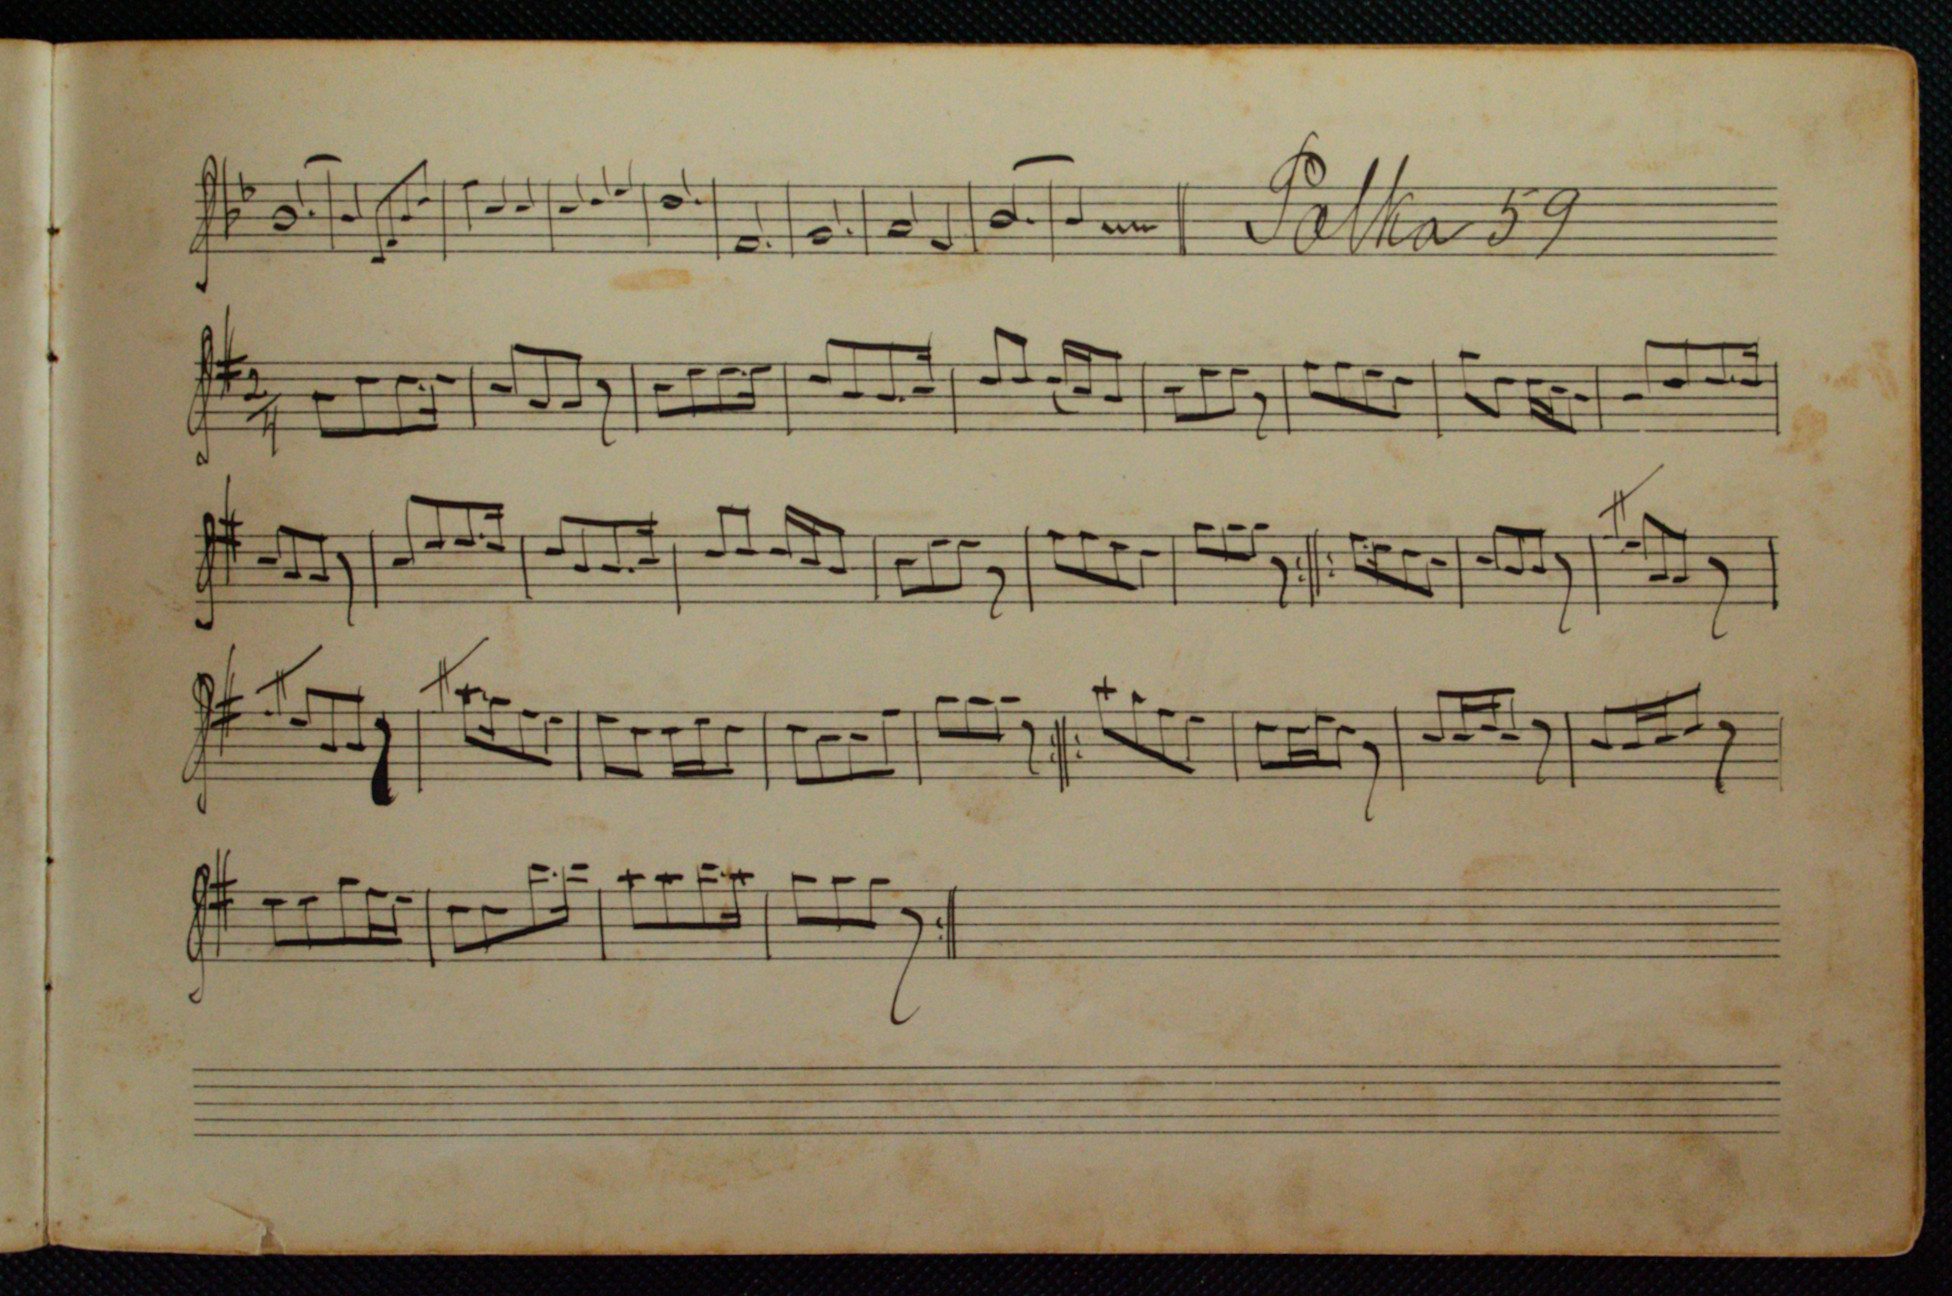 Polka 59
2
4